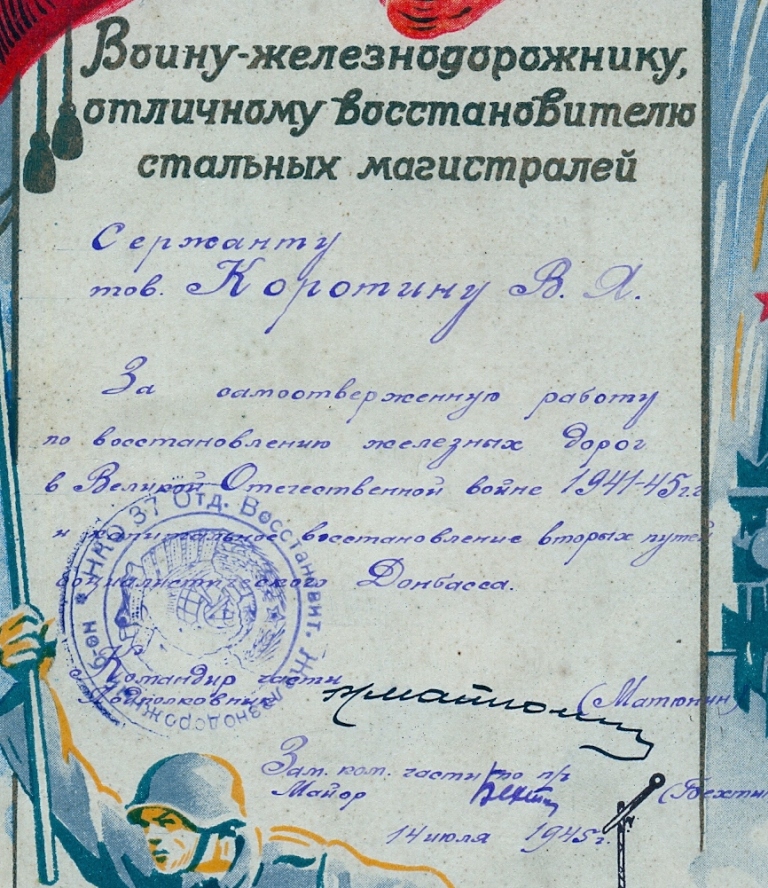 Воину-железнодорожнику,
отличному восстановителю
стальных магистралей
Сержанту
тов. Коротину В. Я.
За самоотверженную работу
по восстановлению железных дорог
в Великой Отечественной войне 1941-45гг
и капитальное восстановление вторых путей
социалистического Донбасса.
НКО 37 Отд. Восстановит. Железнодорожн
Командир части
Подполковник (Матюнин)
Зам. ком. части по п/ч
Майор (Бехтин
14 июля 1945г.